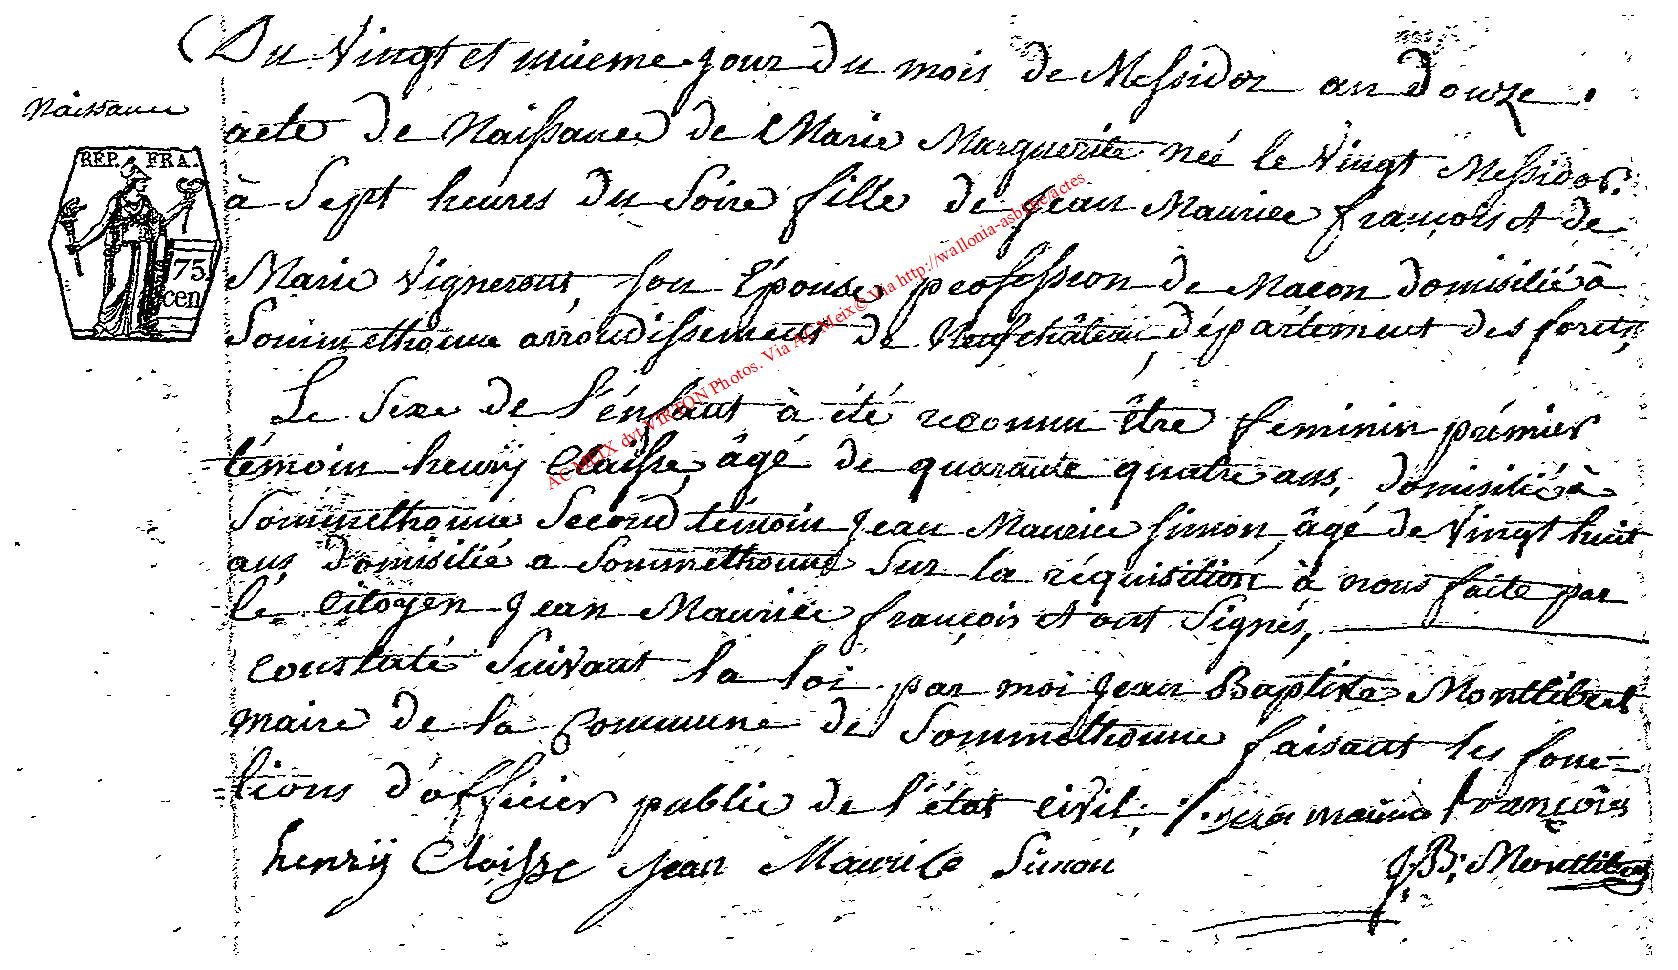 Du Vingt et unieme jour du mois de Messidor an douze.
Naissance
acte de Naissance de Marie Marguerite née le Vingt Messidor.
REP. FRA.
à Sept heures du Soire fille de Jean Maurice françois et de
75
cen
Marie Vigneront, son Épouse, profession de Macon domisilié à
Sommethonne arrondissement de Neufchâteau, département des forets,
Le Sexe de l'énfant à été reconnu être feminin prémier
témoin henry Claisse, âgé de quarante quatre ans, domisilié à
Sommethonne Second témoin Jean Maurice Simon, âgé de Vingt huit
ans, domisilié a Sommethonne Sur la réquisition à nous faite par
le Citoyen Jean Maurice françois et ont Signés,
Constaté Suivant la loi par moi Jean Baptiste Montlibert
maire de la Commune de Sommethonne faisant les fonc-
tions d'officier public de l'état Civil. jean maurice françois
henry Claisse Jean Maurice Simon JB. Montlibert
ACMEIX dvt VIRTON Photos. Via AC Meix© Via http://wallonia-asbl.be/actes